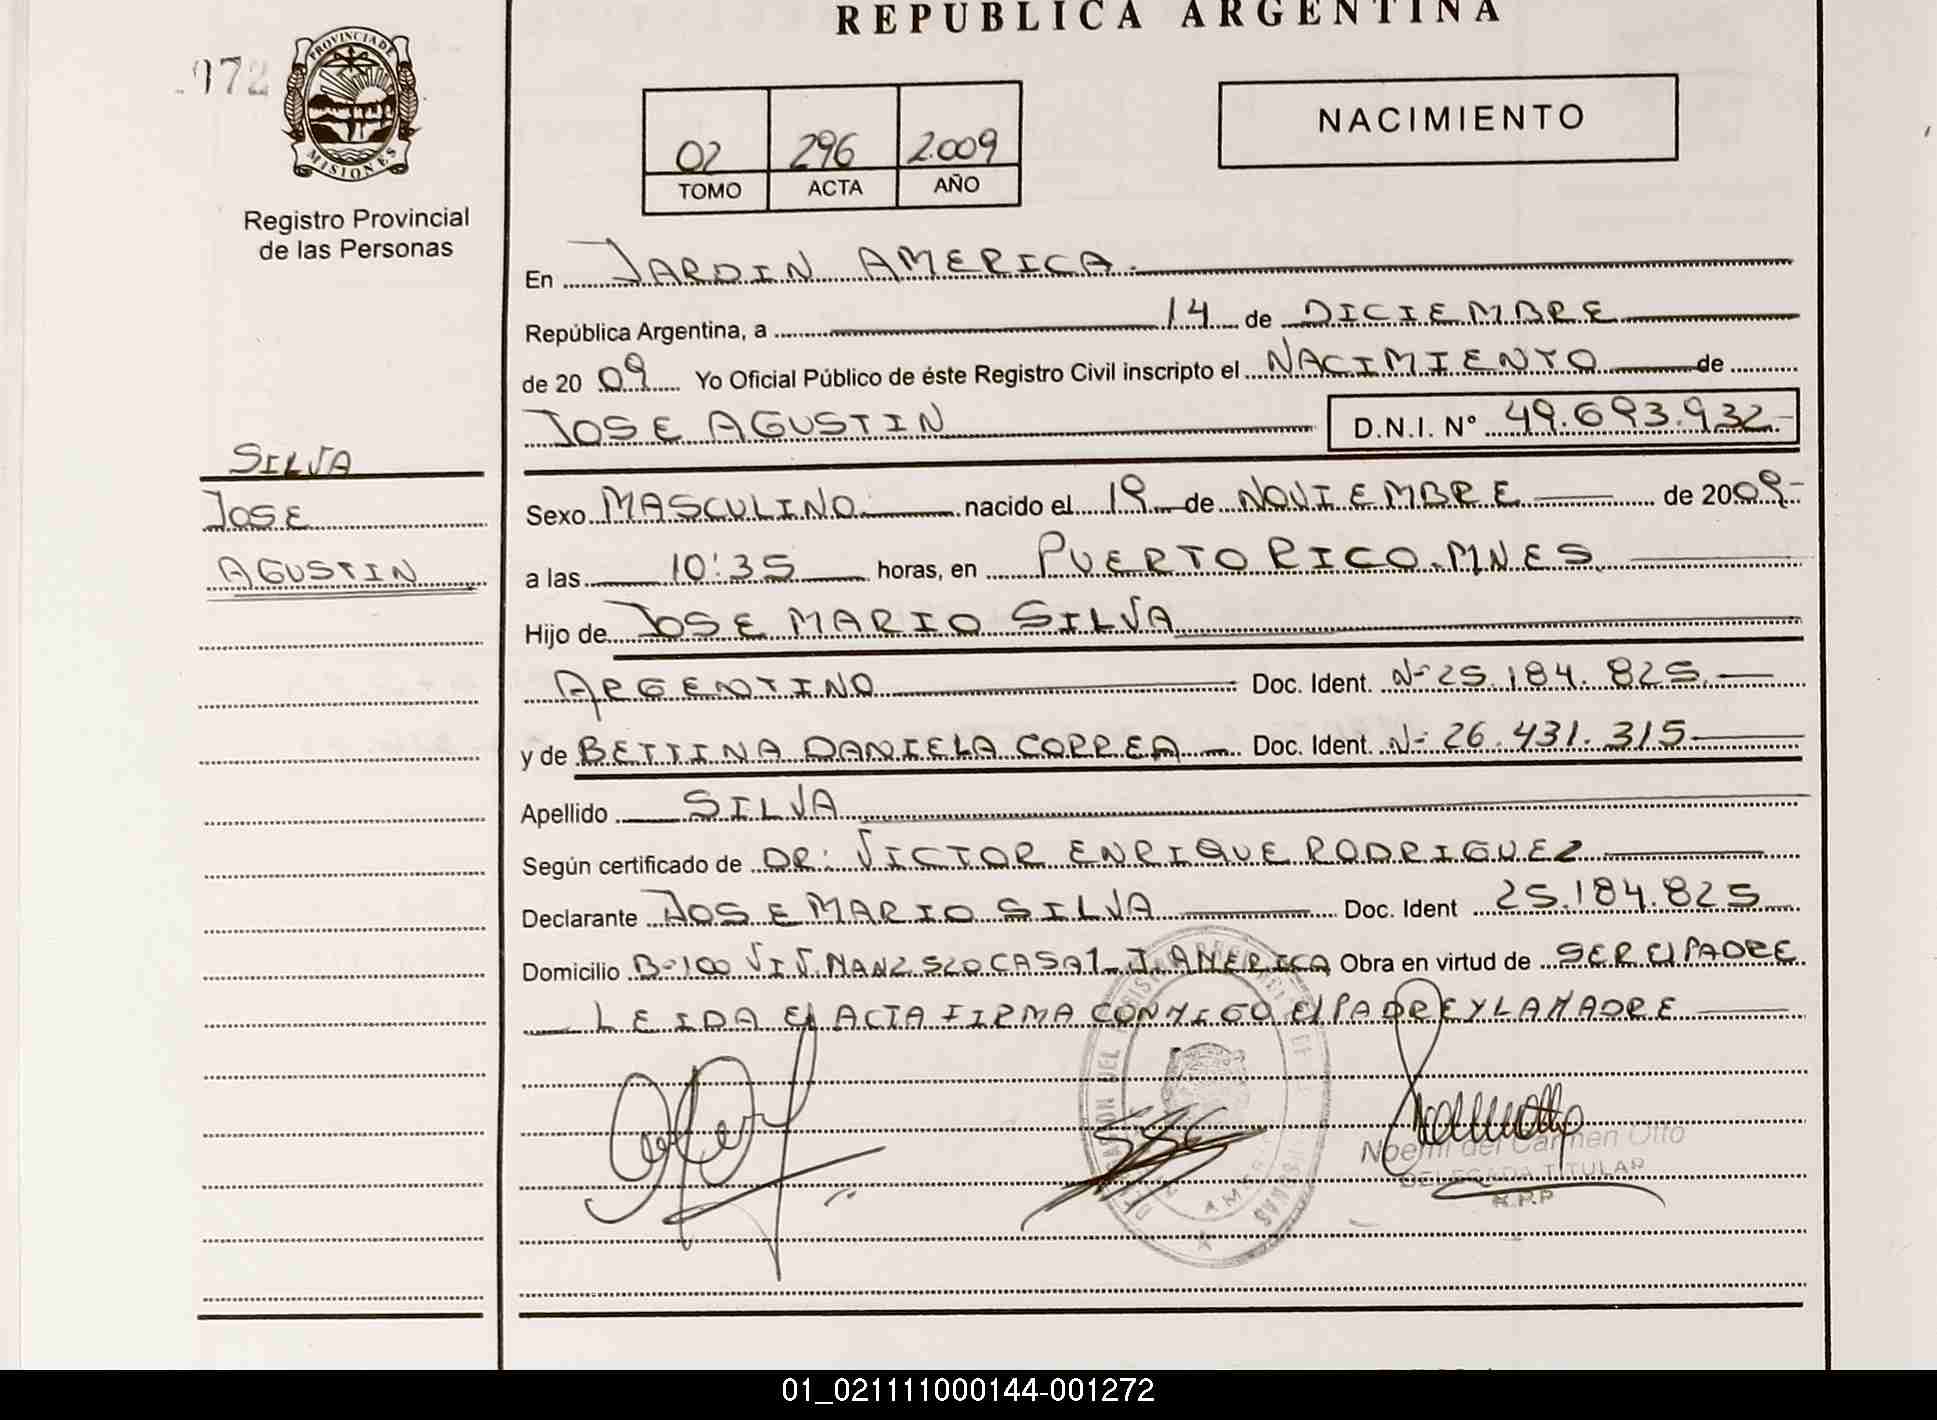 REPUBLICA ARGENTINA
072
PROVINCIA DE
MISIONES
Registro Provincial
de las Personas
02 296 2.009
TOMO ACTA AÑO
NACIMIENTO
En JARDIN AMERICA.
República Argentina, a 14 de DICIEMBRE
de 20 09 Yo Oficial Público de éste Registro Civil inscripto el NACIMIENTO de
JOSE AGUSTIN D.N.I. Nº 49.693.932.-
SILVA
JOSE
AGUSTIN
Sexo MASCULINO. nacido el 19 de NOVIEMBRE de 2009-
a las 10:35 horas, en PUERTO RICO.MNES.
Hijo de JOSE MARIO SILVA
ARGENTINO Doc. Ident. Nº 25.184.825.
y de BETTINA DANIELA CORREA Doc. Ident. Nº 26.431.315
Apellido SILVA
Según certificado de DR: VICTOR ENRIQUE RODRIGUEZ
Declarante JOSE MARIO SILVA Doc. Ident 25.184.825
Domicilio B-100 VIV. CASA1_J.AMERICA Obra en virtud de SER El PADRE
LEIDA El ACTA FIRMA CONMIGO El PADRE Y LA MADRE
Noemi del Carmen Otto
DELEGADA TITULAR
R.P.P
01_021111000144-001272